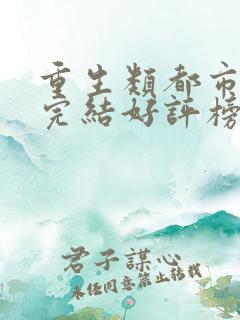 重生類都市
完結好評榜
君子謀心
未经同意禁止转载